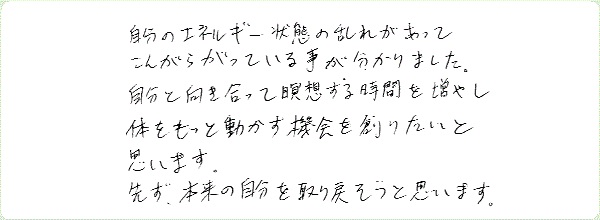 自分のエネルギー状態の乱れがあって
こんがらがっている事が分かりました。
自分と向き合って瞑想する時間を増やし
体をもっと動かす機会を創りたいと
思います。
先ず、本来の自分を取り戻そうと思います。